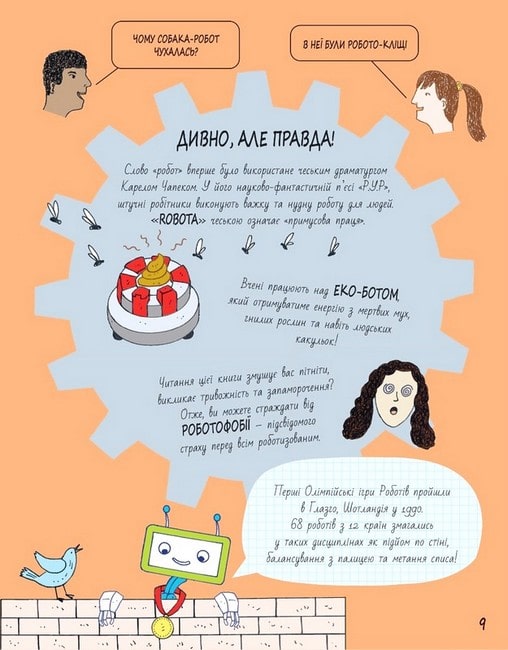 ЧОМУ СОБАКА-РОБОТ
ЧУХАЛАСЬ?
В НЕЇ БУЛИ РОБОТО-КЛІЩІ
ДИВНО, АЛЕ ПРАВДА!
Слово «робот» вперше було використане чеським драматургом
Карелом Чапеком. У його науково-фантастичній п’єсі «Р.У.Р»,
штучні робітники виконують важку та нудну роботу для людей.
«ROBOTA» чеською означає «примусова праця».
Вчені працюють над ЕКО-БОТОМ,
який отримуватиме енергію з мертвих мух,
гнилих рослин та навіть людських
какульок!
Читання цієї книги змушує вас пітніти,
викликає тривожність та запаморочення?
Отже, ви можете страждати від
РОБОТОФОБІЇ – підсвідомого
страху перед всім роботизованим.
Перші Олімпійські ігри Роботів пройшли
в Глазго, Шотландія у 1990.
68 роботів з 12 країн змагались
у таких дисциплінах як підйом по стіні,
балансування з палицею та метання списа!
9